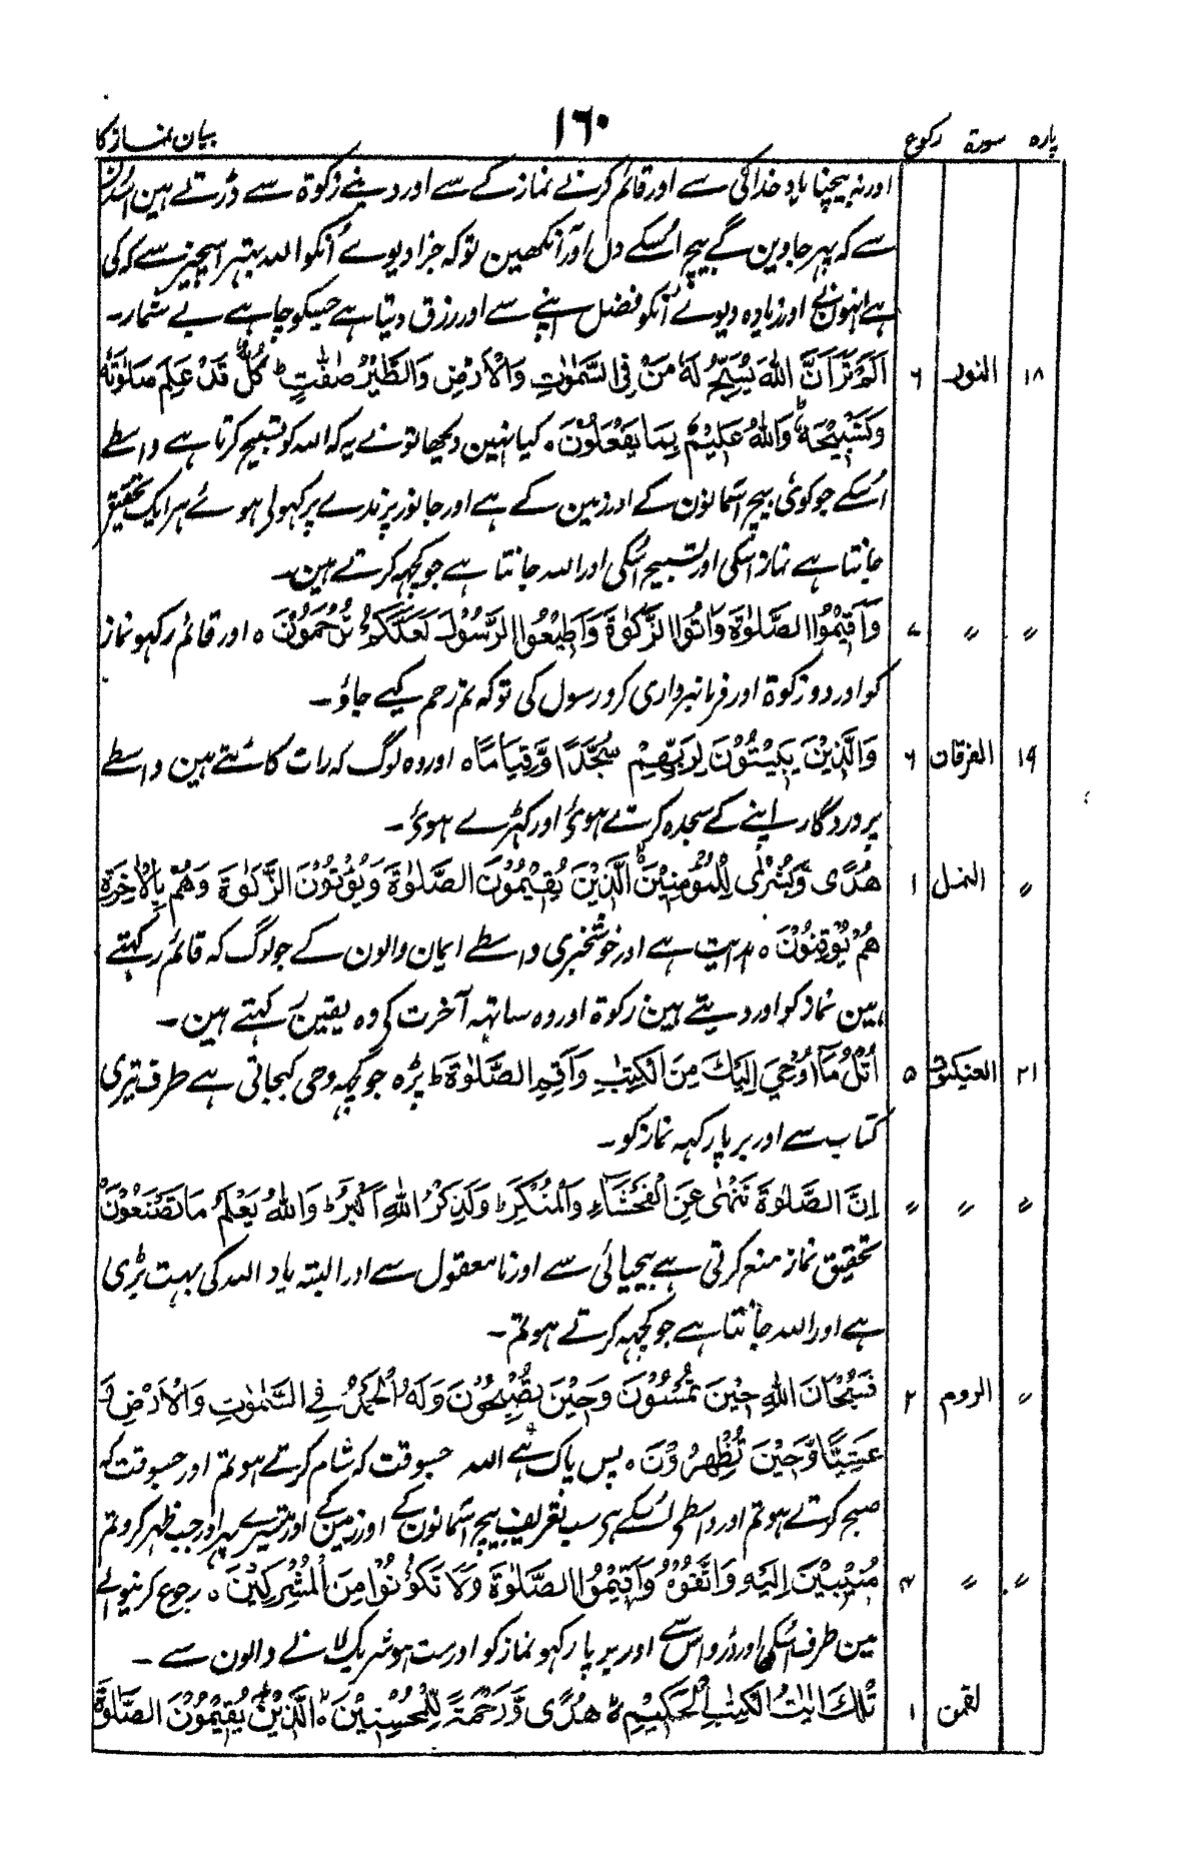 پارہ سورۃ رکوع ۱۶۰ بیان نماز کا
اور نہ بیچنا یاد خدا کی سے اور قائم کرنے نماز کے سے اور دینے زکوۃ سے ڈرتے ہین اسدن
سے کہ پہر جاوین گے بیچ اسکے دل اور آنکھین توکہ جزا دیوے اُنکو اللہ بہتر اسچیز سے کہ کی
ہے انہون نے اور زیادہ دیوے اُنکو فضل اپنے سے اور رزق دیتا ہے جسکو چاہے بے شمار۔
۱۸ النور ۶ اَلَمْ تَرَ اَنَّ اللّٰهَ يُسَبِّحُ لَهٗ مَنْ فِى السَّمٰوٰتِ وَالْاَرْضِ وَالطَّيْرُ صٰٓفّٰتٍ ؕ كُلٌّ قَدْ عَلِمَ صَلَاتَهٗ
وَتَسْبِيْحَهٗ ؕ وَاللّٰهُ عَلِيْمٌۢ بِمَا يَفْعَلُوْنَ ۝ کیا نہین دیکھا تو نے یہ کہ اللہ کو تسبیح کرتا ہے واسطے
اُسکے جو کوئی بیچ آسمانون کے اور زمین کے ہے اور جانور پرندے پر کہولی ہوئے ہر ایک تحقیق
جانتا ہے نماز اُسکی اور تسبیح اُسکی اور اللہ جانتا ہے جو کچہہ کرتے ہین۔
〃 〃 ۷ وَاَقِيْمُوا الصَّلٰوةَ وَاٰتُوا الزَّكٰوةَ وَاَطِيْعُوا الرَّسُوْلَ لَعَلَّكُمْ تُرْحَمُوْنَ ۝ اور قائم رکہو نماز
کو اور دو زکوۃ اور فرمانبرداری کرو رسول کی توکہ تم رحم کیے جاؤ۔
۱۹ الفرقان ۶ وَالَّذِيْنَ يَبِيْتُوْنَ لِرَبِّهِمْ سُجَّدًا وَّقِيَامًا ۝ اور وہ لوگ کہ رات کاٹتے ہین واسطے
پروردگار اپنے کے سجدہ کرتے ہوئ اور کہڑے ہوئ۔
〃 النمل ۱ هُدًى وَّبُشْرٰى لِلْمُؤْمِنِيْنَ ۙ الَّذِيْنَ يُقِيْمُوْنَ الصَّلٰوةَ وَيُؤْتُوْنَ الزَّكٰوةَ وَهُمْ بِالْاٰخِرَةِ
هُمْ يُوْقِنُوْنَ ۝ ہدایت ہے اور خوشخبری واسطے ایمان والون کے جو لوگ کہ قائم رکہتے
ہین نماز کو اور دیتے ہین زکوۃ اور وہ ساتہہ آخرت کی وہ یقین رکہتے ہین۔
۲۱ العنکبوت ۵ اُتْلُ مَآ اُوْحِىَ اِلَيْكَ مِنَ الْكِتٰبِ وَاَقِمِ الصَّلٰوةَ ؕ پڑہ جو کچہہ وحی کیجاتی ہے طرف تیری
کتاب سے اور برپا رکہہ نماز کو۔
〃 〃 〃 اِنَّ الصَّلٰوةَ تَنْهٰى عَنِ الْفَحْشَآءِ وَالْمُنْكَرِ ؕ وَلَذِكْرُ اللّٰهِ اَكْبَرُ ؕ وَاللّٰهُ يَعْلَمُ مَا تَصْنَعُوْنَ ۝
تحقیق نماز منع کرتی ہے بیحیائی سے اور نامعقول سے اور البتہ یاد اللہ کی بہت بڑی
ہے اور اللہ جانتا ہے جو کچہہ کرتے ہو تم۔
〃 الروم ۲ فَسُبْحَانَ اللّٰهِ حِيْنَ تُمْسُوْنَ وَحِيْنَ تُصْبِحُوْنَ وَلَهُ الْحَمْدُ فِى السَّمٰوٰتِ وَالْاَرْضِ وَ
عَشِيًّا وَّحِيْنَ تُظْهِرُوْنَ ۝ پس پاک ہے اللہ جسوقت کہ شام کرتے ہو تم اور جسوقت کہ
صبح کرتے ہو تم اور واسطے اُسکے ہی سب تعریف بیچ آسمانون کے اور زمین کے اور تیسرے پہر اور جب ظہر کرو تم
〃 〃 ۴ مُنِيْبِيْنَ اِلَيْهِ وَاتَّقُوْهُ وَاَقِيْمُوا الصَّلٰوةَ وَلَا تَكُوْنُوْا مِنَ الْمُشْرِكِيْنَ ۝ رجوع کرنیوالے
ہین طرف اُسکی اور ڈرو اُس سے اور برپا رکہو نماز کو اور مت ہو شریک لانے والون سے۔
لقمن ۱ تِلْكَ اٰيٰتُ الْكِتٰبِ الْحَكِيْمِ ۙ هُدًى وَّرَحْمَةً لِّلْمُحْسِنِيْنَ ۙ الَّذِيْنَ يُقِيْمُوْنَ الصَّلٰوةَ